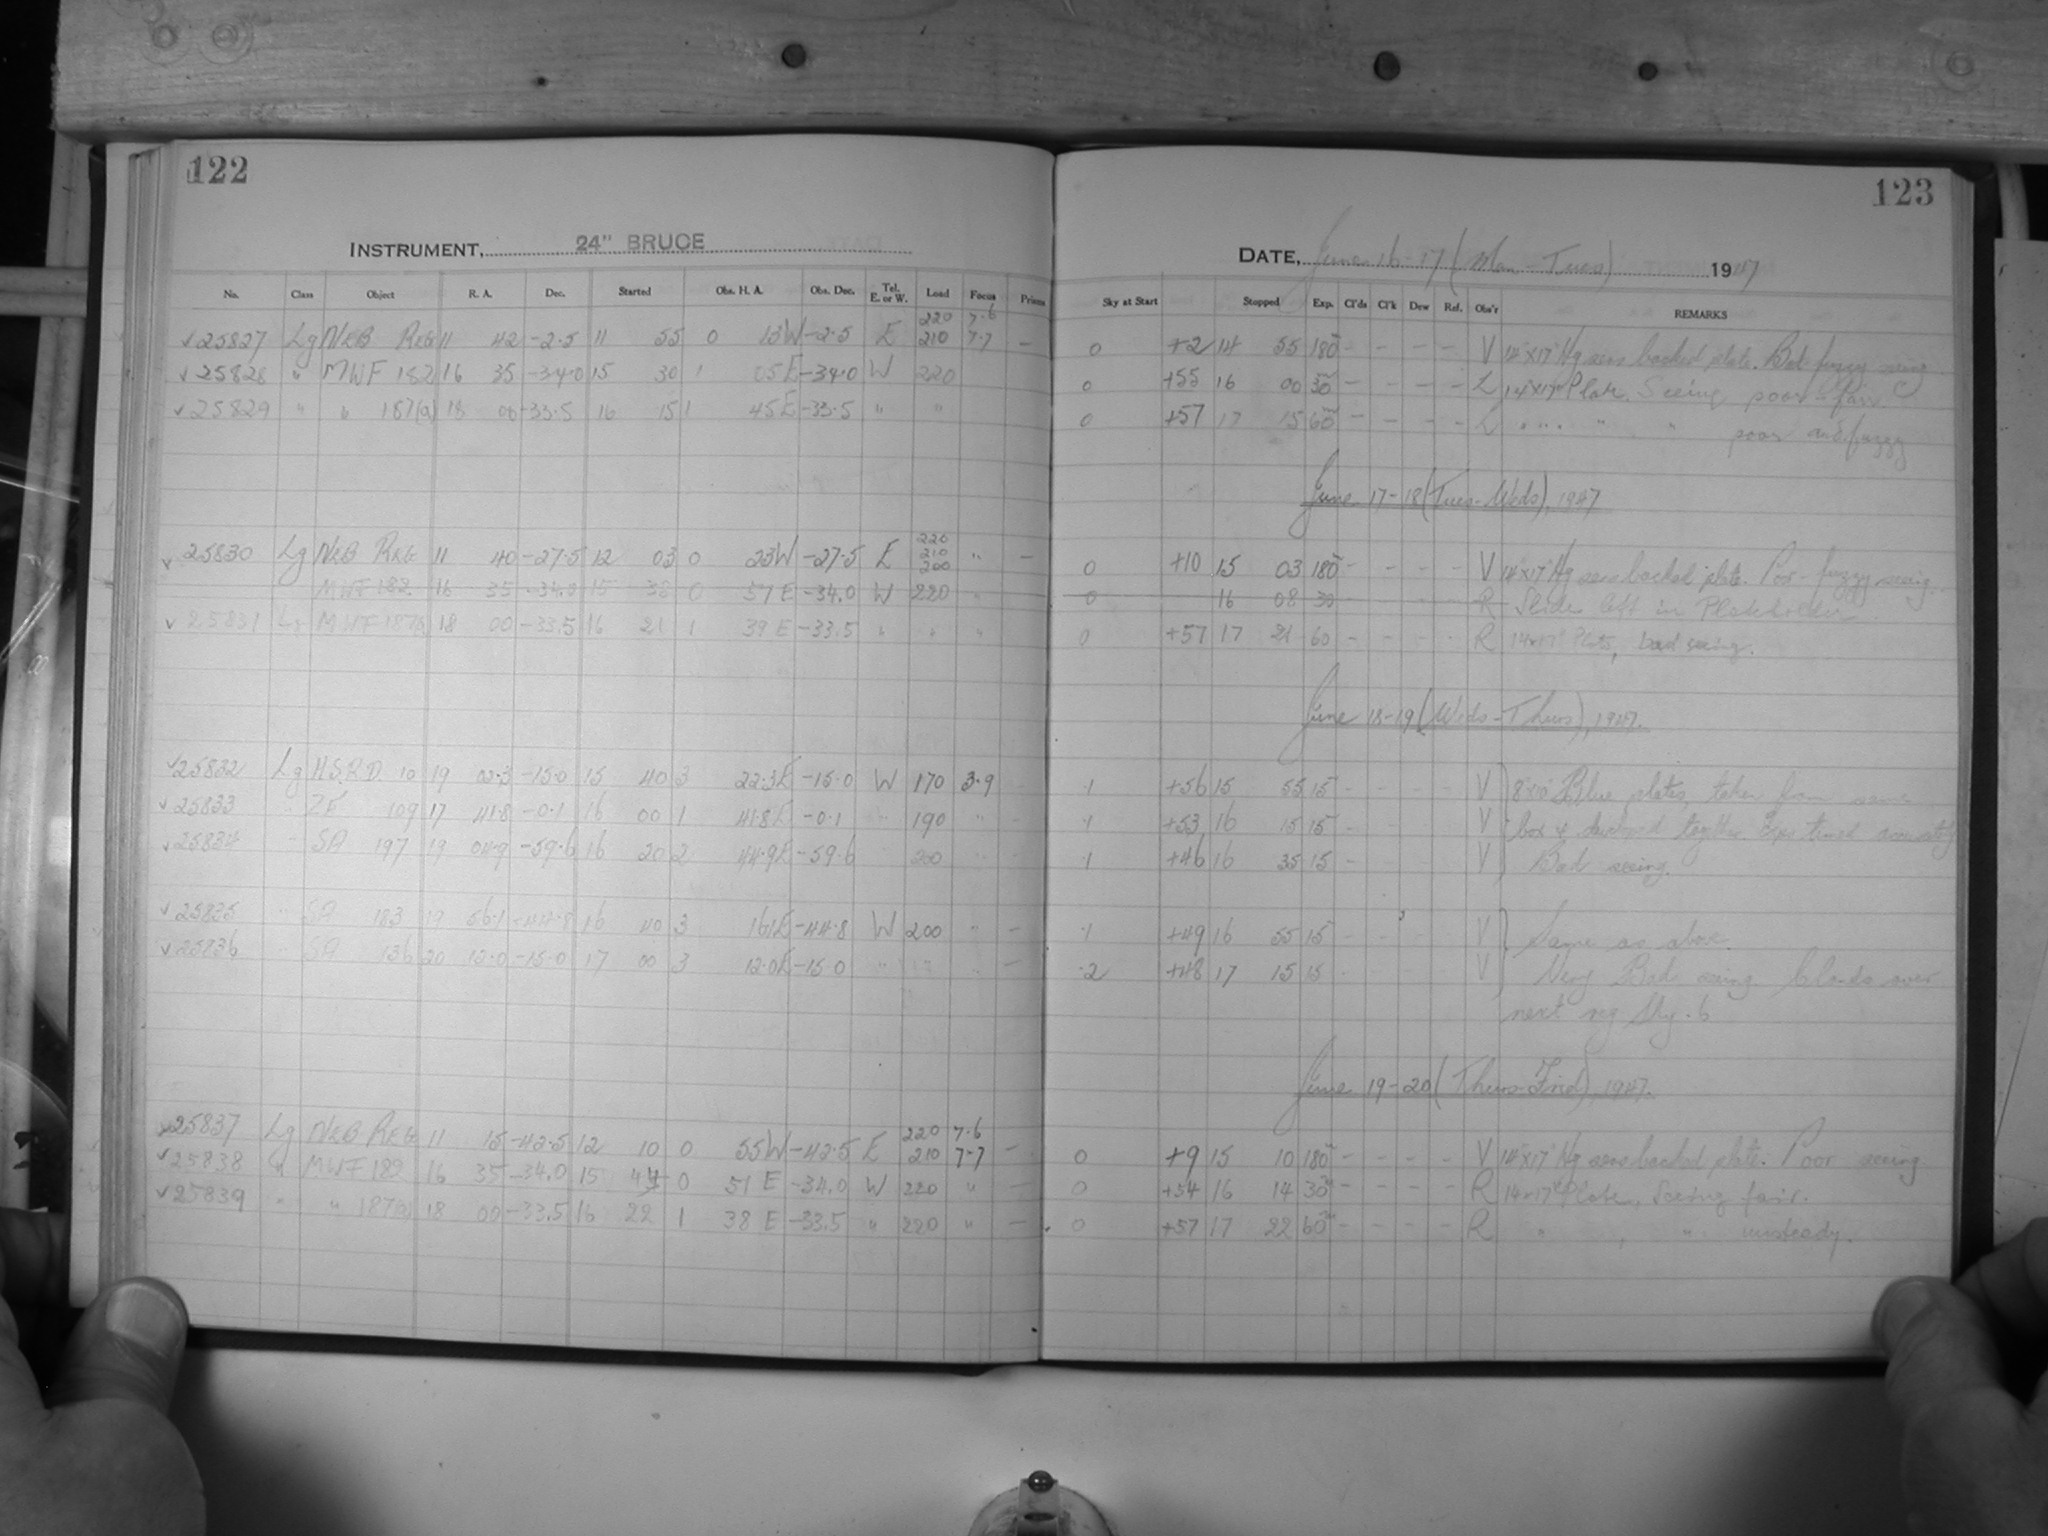 122
INSTRUMENT, 24" BRUCE
No. Class Object R. A. Dec. Started Obs. H. A. Obs. Dec. Tel. E. or W. Load Focus Prisms
220 7.6
√25827 Lg NEB REG 11 42 -2.5 11 55 0 13W -2.5 E 210 7.7 —
√25828 " MWF 182 16 35 -34.0 15 30 1 05E -34.0 W 220
√25829 " " 187(a) 18 00 -33.5 16 15 1 45E -33.5 " "
220
√25830 Lg NEB REG 11 40 -27.5 12 03 0 23W -27.5 E 210 " —
200
MWF 182 16 35 -34.0 15 38 0 57E -34.0 W 220 "
√25831 Lg MWF 187(a) 18 00 -33.5 16 21 1 39E -33.5 " " "
√25832 Lg H.S.R.D. 10 19 02.3 -15.0 15 40 3 22.3E -15.0 W 170 3.9
√25833 " ZF 109 17 41.8 -0.1 16 00 1 41.8E -0.1 " 190 "
√25834 " SA 197 19 04.9 -59.6 16 20 2 44.9E -59.6 200 "
√25835 " SA 183 19 56.1 -44.8 16 40 3 16.1E -44.8 W 200 " —
√25836 " SA 136 20 12.0 -15.0 17 00 3 12.0E -15.0 " " —
220 7.6
√25837 Lg NEB REG 11 15 -42.5 12 10 0 55W -42.5 E 210 7.7 —
√25838 " MWF 182 16 35 -34.0 15 44 0 51E -34.0 W 220 " —
√25839 " " 187(a) 18 00 -33.5 16 22 1 38E -33.5 " 220 " —
123
DATE, June 16-17 (Mon-Tues) 1947
Sky at Start Stopped Exp. Cl'ds Cl'k Dew Ref. Obs'r REMARKS
0 +2 14 55 180 — — — — V 14"x17" Hg sens backed plate. Bad fuzzy seeing
0 +55 16 00 30 — — — — L 14"x17" Plate. Seeing poor-fair
0 +57 17 15 60 — — — — L " " " " poor and fuzzy
June 17-18 (Tues-Weds), 1947
0 +10 15 03 180 — — — — V 14"x17" Hg sens backed plate. Poor-fuzzy seeing.
0 16 08 30 R Slide left in Plateholder
0 +57 17 21 60 — — — — R 14x17" Plate, bad seeing.
June 18-19 (Weds-Thurs), 1947.
.1 +56 15 55 15 — — — — V 8"x10" Blue plates, taken from same
.1 +53 16 15 15 — — — — V box & developed together. Exps timed accurately
.1 +46 16 35 15 — — — — V Bad seeing.
.1 +49 16 55 15 — — — — V Same as above.
.2 +48 17 15 15 — — — — V Very Bad seeing. Clouds over
next reg Sky .6
June 19-20 (Thurs-Frid), 1947.
0 +9 15 10 180 — — — — V 14"x17" Hg sens backed plate. Poor seeing
0 +54 16 14 30 — — — — R 14x17" Plate, Seeing fair.
0 +57 17 22 60 — — — — R " , " unsteady.